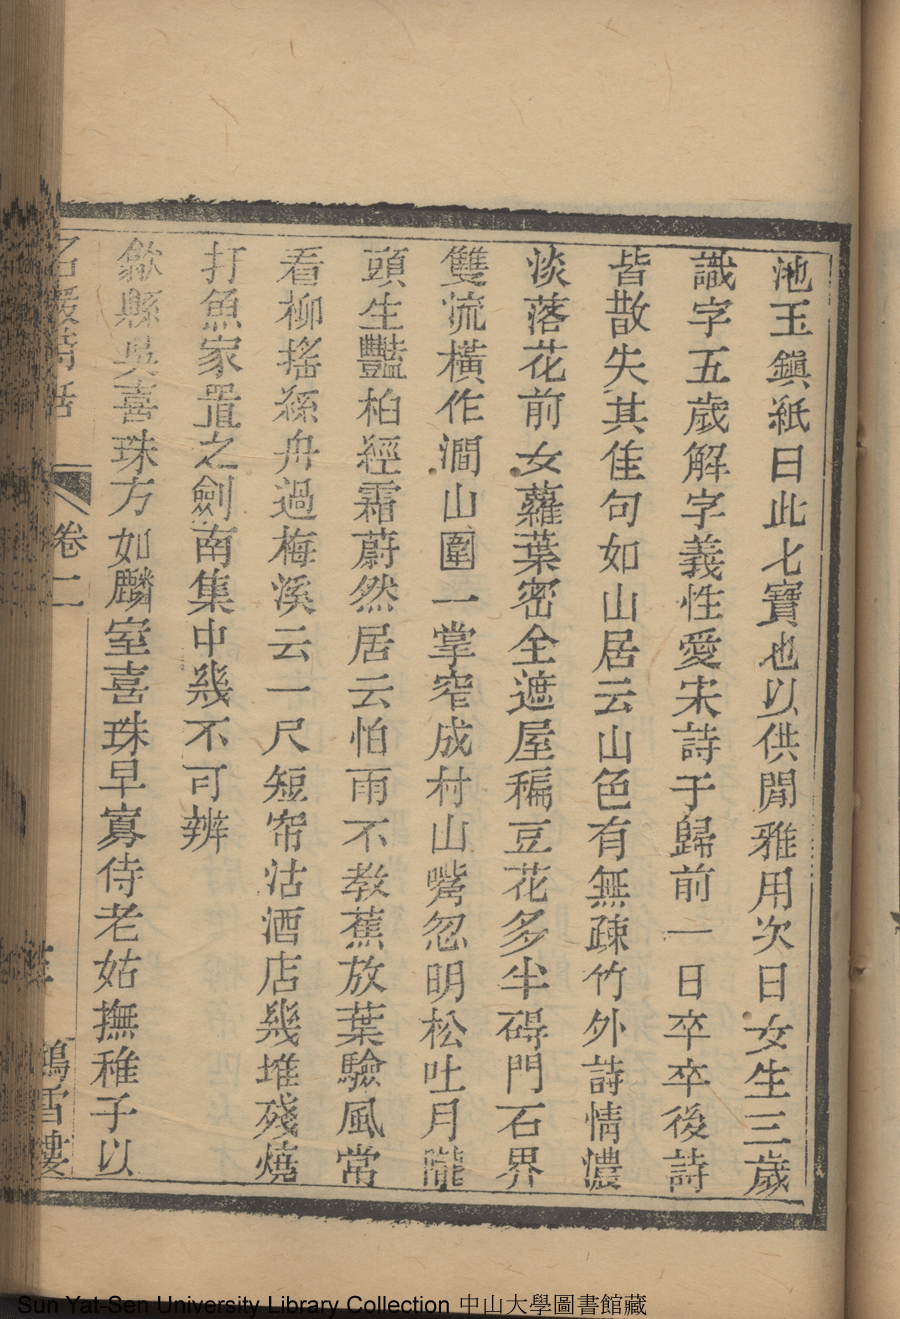 池玉鎭紙曰此七寶也以供閒雅用次日女生三歲
識字五歲解字義性愛宋詩于歸前一日卒卒後詩
皆散失其佳句如山居云山色有無疎竹外詩情濃
淡落花前女蘿葉密全遮屋稨豆花多半碍門石界
雙流橫作澗山圍一掌窄成村山嘴忽明松吐月隴
頭生豔柏經霜蔚然居云怕雨不教蕉放葉驗風常
看柳搖絲舟過梅溪云一尺短帘沽酒店幾堆殘燒
打魚家置之劍南集中幾不可辨
歙縣吳喜珠方如麟室喜珠早寡侍老姑撫稚子以
名媛詩話
卷二
鴻雪樓
Sun Yat-Sen University Library Collection 中山大學圖書館藏